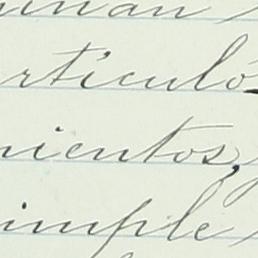 unan
rticuló
nientos,
imple